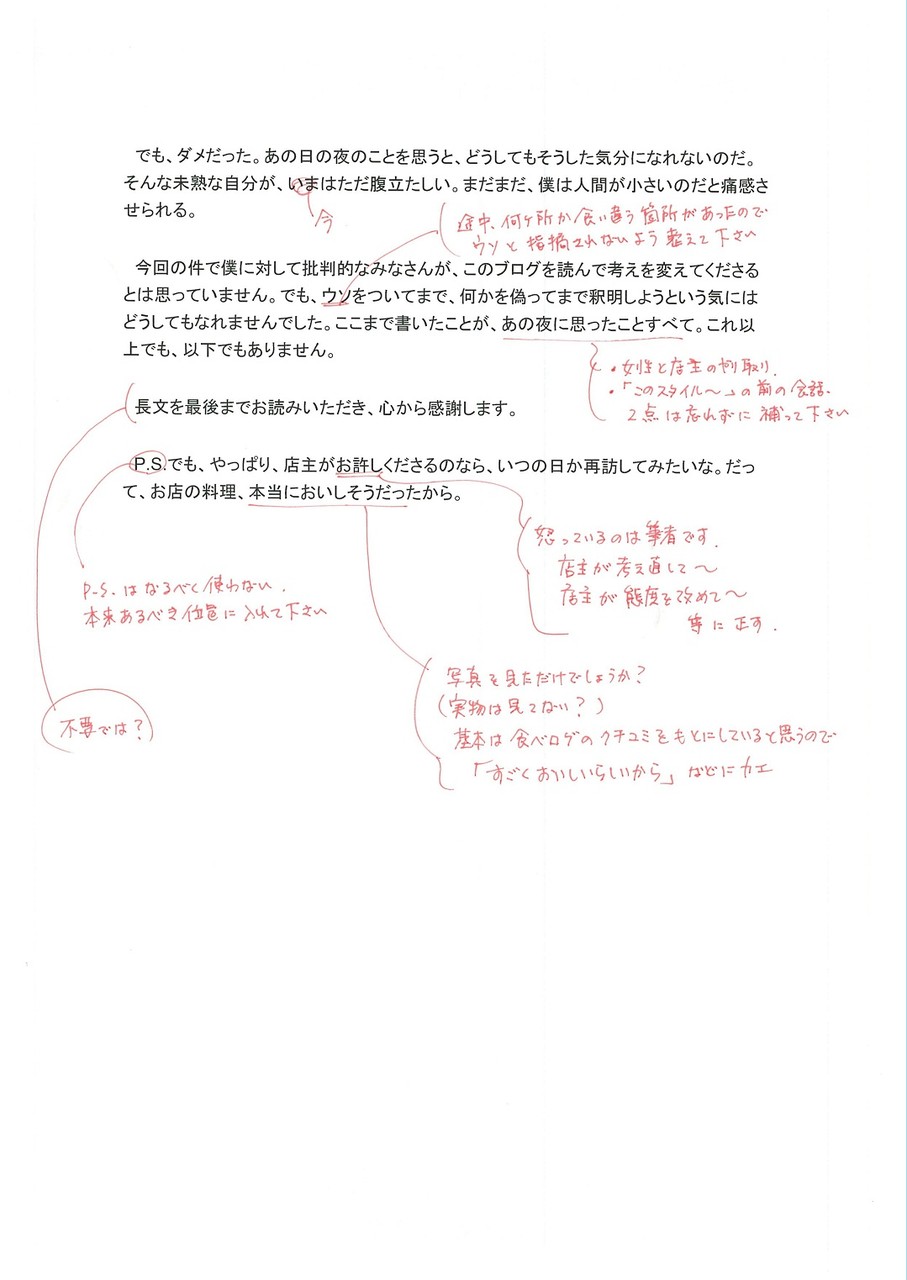 でも、ダメだった。あの日の夜のことを思うと、どうしてもそうした気分になれないのだ。
そんな未熟な自分が、いまはただ腹立たしい。まだまだ、僕は人間が小さいのだと痛感さ
せられる。
今
途中、何ヶ所か食い違う箇所があったので
ウソと指摘されないよう整えて下さい
今回の件で僕に対して批判的なみなさんが、このブログを読んで考えを変えてくださる
とは思っていません。でも、ウソをついてまで、何かを偽ってまで釈明しようという気には
どうしてもなれませんでした。ここまで書いたことが、あの夜に思ったことすべて。これ以
上でも、以下でもありません。
・女性と店主のやり取り.
・「このスタイル〜」の前の会話.
2点は忘れずに補って下さい
長文を最後までお読みいただき、心から感謝します。
P.S.でも、やっぱり、店主がお許しくださるのなら、いつの日か再訪してみたいな。だっ
て、お店の料理、本当においしそうだったから。
怒っているのは筆者です.
店主が考え直して〜
店主が態度を改めて〜
等に正す.
P.S.はなるべく使わない.
本来あるべき位置に入れて下さい
写真を見ただけでしょうか?
(実物は見てない?)
基本は食べログのクチコミをもとにしていると思うので
「すごくおいしいらしいから」などにカエ
不要では?